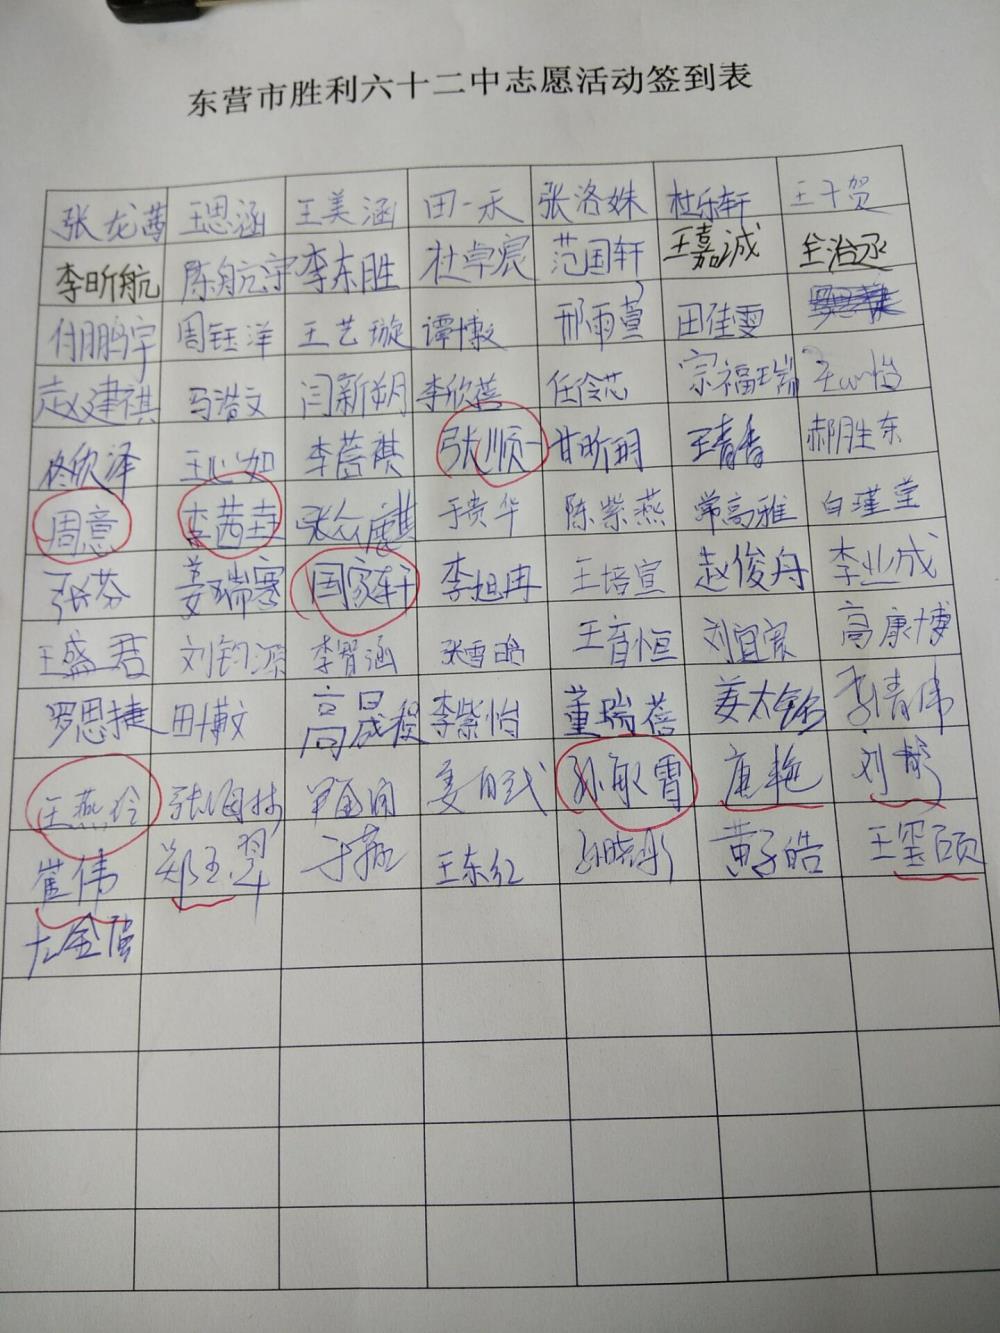 东营市胜利六十二中志愿活动签到表
张龙茜 王思涵 王美涵 田一禾 张洛姝 杜乐轩 王千贺
李昕航 陈航宇 李东胜 杜卓宸 范国轩 王嘉诚
付鹏宇 周钰洋 王艺璇 谭博敏 邢雨萱 田佳雯
赵建祺 马浩文 闫新朔 李欣蓓 任伶芯 宗福瑞
佟欣泽 王心如 李萱祺 张顺一 甘昕玥 王青香 郝胜东
周意 李茜垚 于贵华 陈紫燕 常高雅 白瑾莹
张芬 姜瑞骞 国家轩 李旭冉 王培宣 赵俊舟 李业成
王盛君 刘钧源 李智涵 张雪晗 王音恒 刘宜宸 高康博
罗思捷 田博文 高晟程 李紫怡 董瑞蓓 姜太铭 李青伟
王燕玲 孙敏霄 唐艳
崔伟 王东红 孙晓彤 黄子皓 王玺硕